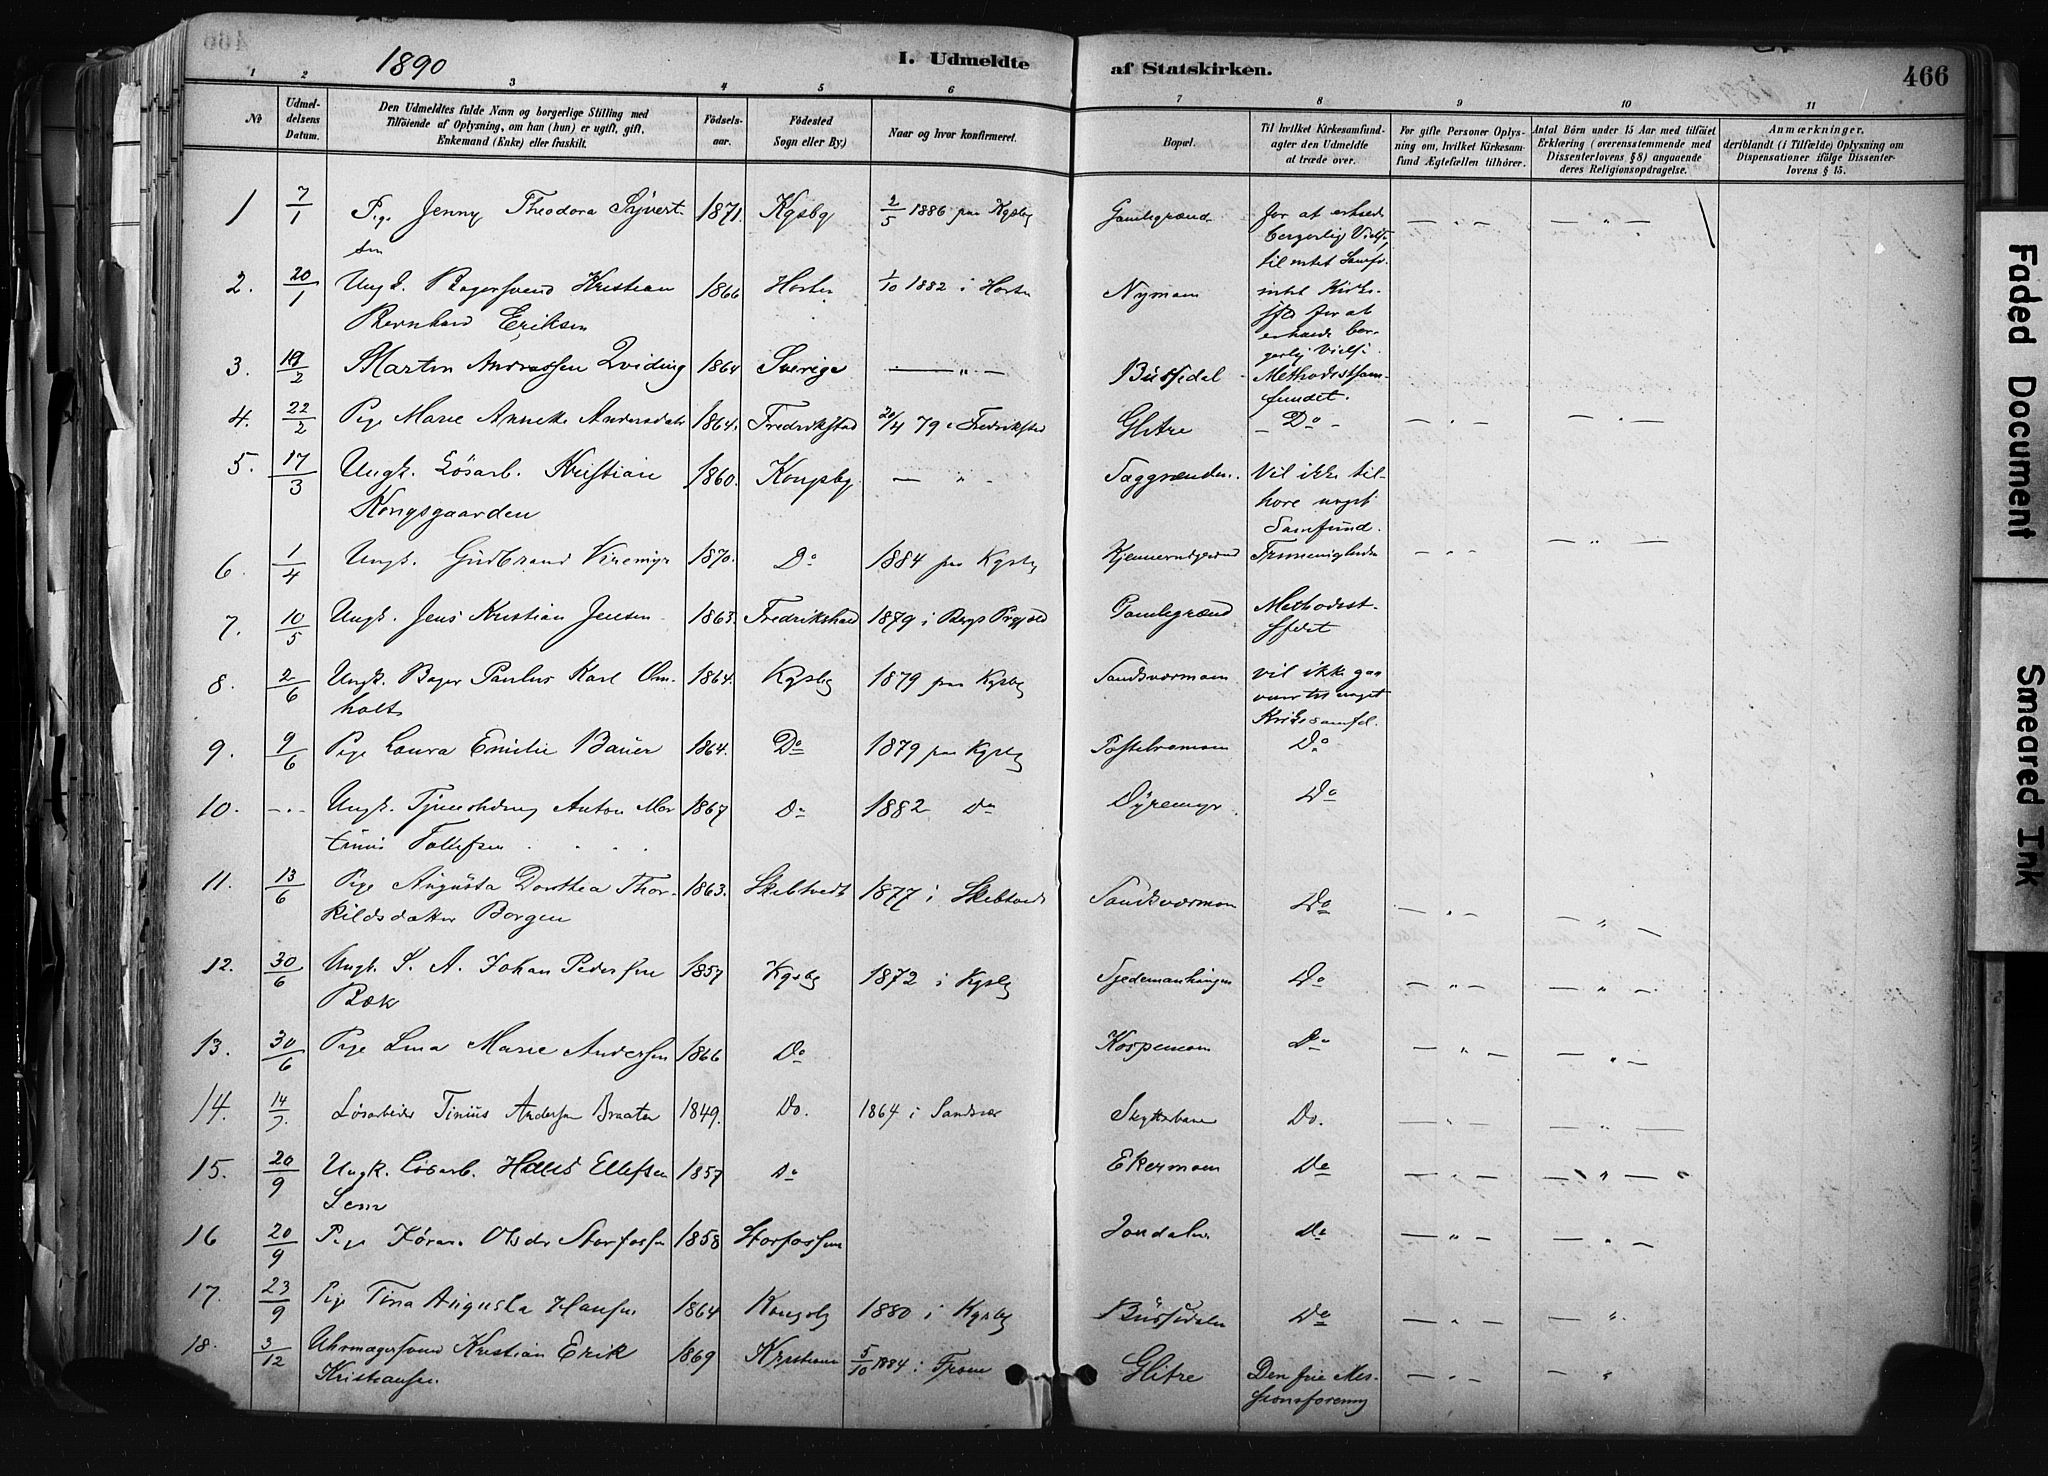 1890
I. Udmeldte af Statskirken.
466
1 2 3 4 5 6 7 8 9 10 11
No
Udmeldelsens Datum.
Den Udmeldtes fulde Navn og borgerlige Stilling med
Tilföiende af Oplysning, om han (hun) er ugift, gift,
Enkemand (Enke) eller fraskilt.
Födselsaar.
Födested
Sogn eller By)
Naar og hvor konfirmeret.
Bopæl.
Til hvilket Kirkesamfund
agter den Udmeldte
at træde over.
For gifte Personer Oplys-
ning om, hvilket Kirkesam-
fund Ægtefællen tilhörer.
Antal Börn under 15 Aar med tilföiet
Erklæring (overensstemmende med
Dissenterlovens § 8) angaaende
deres Religionsopdragelse.
Anmærkninger,
deriblandt (i Tilfælde) Oplysning om
Dispensationer ifölge Dissenter-
lovens § 15.
1 7/1 Pige Jenny Theodora Syvert- 1871. Kgsbg 2/5 1886 paa Kgsbg Gamlegrænd for at erholde
sen borgerlig Vielse,
til intet Samfd.
2. 20/1 Ungk. Bagersvend Kristian 1866 Horten 1/10 1882 i Horten Nymoen intet Kirke-
Bernhard Eriksen sfd for at
erholde bor-
gerlig Vielse.
3. 19/2 Martin Andreassen Qviding 1864 Sverige — „ — Bussedal Methodistsam-
fundet.
4. 22/2 Pige Marie Annette Andersdatr 1864. Fredrikstad 20/4 79 i Fredriksstad Glitre — Do — — „ — — „ —
5. 17/3 Ungk. Løsarb. Kristian 1860. Kongsbg — „ — Taggrænden. Vil ikke til-
Kongsgaarden høre noget
Samfund.
6. 1/4 Ungk. Gudbrand 1870. Do 1884 paa Kgsbg — „ — — „ —
7. 10/5 Ungk. Jens Kristian Jensen 1863. Fredrikshald 1879 i Bergs Prgjæld Gamlegrænd Methodist-
sfdet
8. 2/6 Ungk. Bager Paulus Karl Om- 1864. Kgsbg 1879 paa Kgsbg Sandsværmoen vil ikke gaa
holt over til noget
Kirkesamfd.
9. 9/6 Pige Laura Emilie Bauer 1864. Do 1879 paa Kgsbg Do
10. — „ — Ungk. Anton Mar- 1867 Do 1882 Do Dyremyr Do
tinius Tollefsen
11. 13/6 Pige Augusta Dorthea Thor- 1863. Skebtvedt 1877 i Skebtvedt Sandsværmoen Do — „ — — „ —
kildsdatter Borgen
12. 30/6 Ungk. S. A. Johan Pedersen 1857 Kgsbg 1872 i Kgsbg Do — „ — — „ —
Bæk
13. 30/6 Pige Lina Marie Andersen 1866 Do Do — „ — — „ —
14. 14/7 Løsarbeider Tinius Andersen Braaten 1849. Do. 1864 i Sandsvær Skytterbane Do. — „ — — „ —
15. 20/9 Ungk. Løsarb. Hans Ellefsen 1857 Do Ekermoen Do — „ — — „ —
16 20/9 Pige Olsdr Storfossen 1858 Storfossen Jondalen Do — „ — — „ —
17. 23/9 Pige Tina Augusta Hansen 1864 Kongsbg 1880 i Kgsbg Bussedalen Do — „ — — „
18. 3/12 Uhrmagersvend Kristian Erik 1869 Kristiania 5/10 1884 i Glitre Den frie Mis- — „ — — „
Kristiansen sionsforening
Faded Document
Smeared Ink